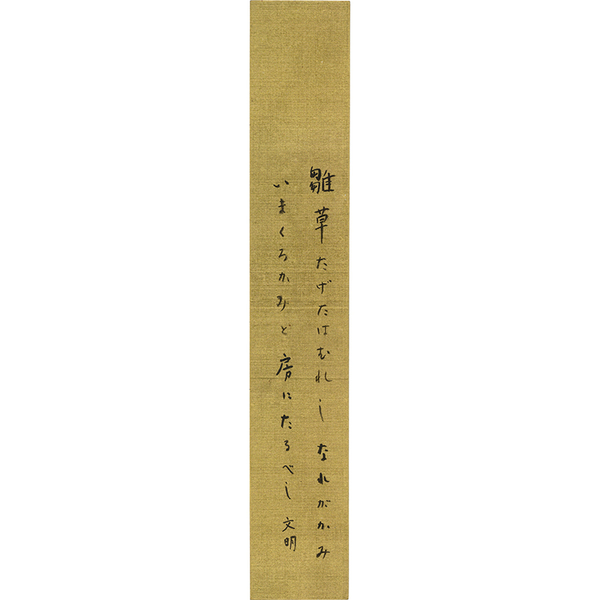 雛草たげたはむれし なれがかみ
いまくろかみと房にたるべし 文明